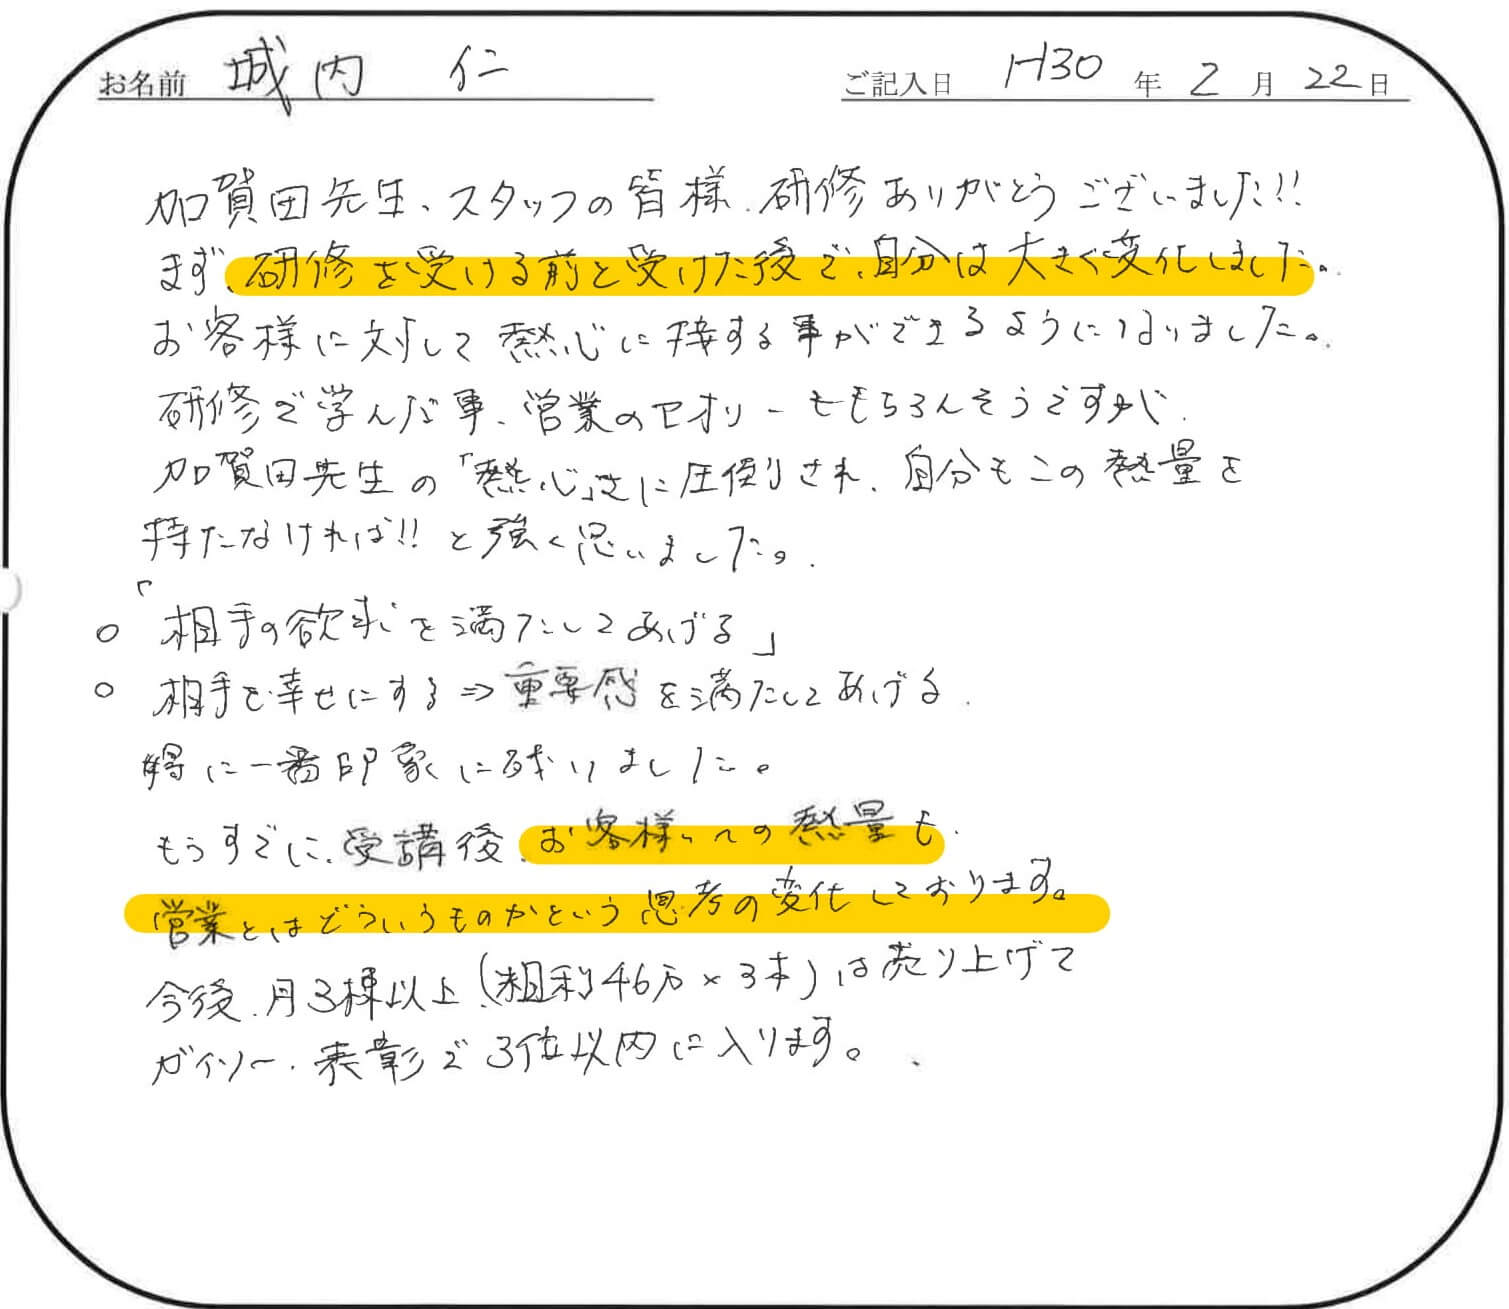 お名前 城内 仁
ご記入日 H30年2月22日
加賀田先生、スタッフの皆様、研修ありがとうございました!!
まず、研修を受ける前と受けた後で、自分は大きく変化しました。
お客様に対して熱心に接する事ができるようになりました。
研修で学んだ事、営業のセオリーももちろんそうですが、
加賀田先生の「熱心」さに圧倒され、自分もこの熱量を
持たなければ!!と強く思いました。
○「相手の欲求を満たしてあげる」
○ 相手を幸せにする⇒重要感を満たしてあげる.
特に一番印象に残りました。
もうすでに、受講後、お客様への熱量も
営業とはどういうものかという思考の変化しております。
今後、月3棟以上(粗利46万×3本)は売り上げて
ガイソー、表彰で3位以内に入ります。